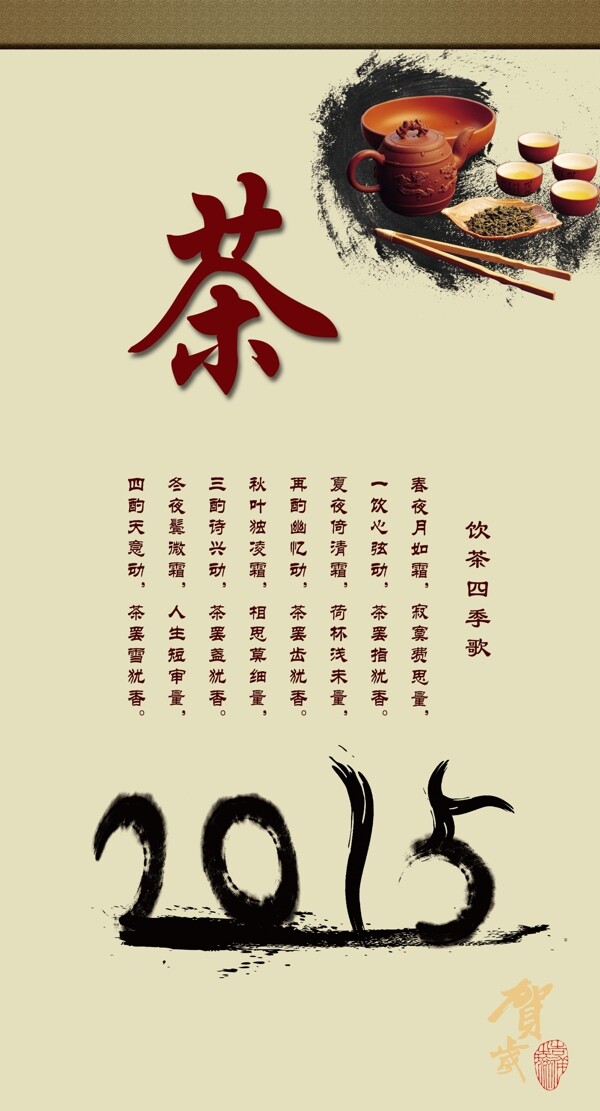 茶
饮茶四季歌
春夜月如霜，寂寞费思量，
一饮心弦动，茶罢指犹香。
夏夜倚清霜，荷杯浅未量，
再酌幽忆动，茶罢齿犹香。
秋叶独凌霜，相思莫细量，
三酌诗兴动，茶罢盏犹香。
冬夜鬓微霜，人生短审量，
四酌天意动，茶罢雪犹香。
2015
賀歲